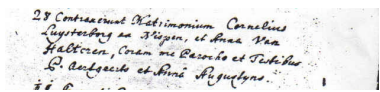 23 Contraxerunt Matrimonium Cornelius
Luysterborg ex Nispen, et Anna Van
Halteren, Coram me Parocho et Testibus
P. Aertgaerts et Anna Augustyns.